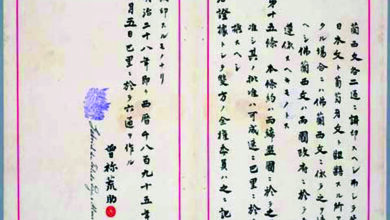 蘭西文各二通ニ調印スヘシ
日本文ト葡萄牙文ト
タル場合ニハ佛蘭西文ニ依リ之ヲ
ヘシ佛蘭西文ハ兩國政府ニ於テ
遵依スヘキモノトス
第十五條 本條約ハ兩締盟國ニ於テ之
准シ其批准ハ可成速ニ巴里ニ於
換スヘシ
右證據トシテ雙方ノ全權委員ハ之ニ記
調印スルモノナリ
明治二十八年即チ西暦千八百九十五年
月五日巴里ニ於テ六通ヲ作ル
曾祢荒助